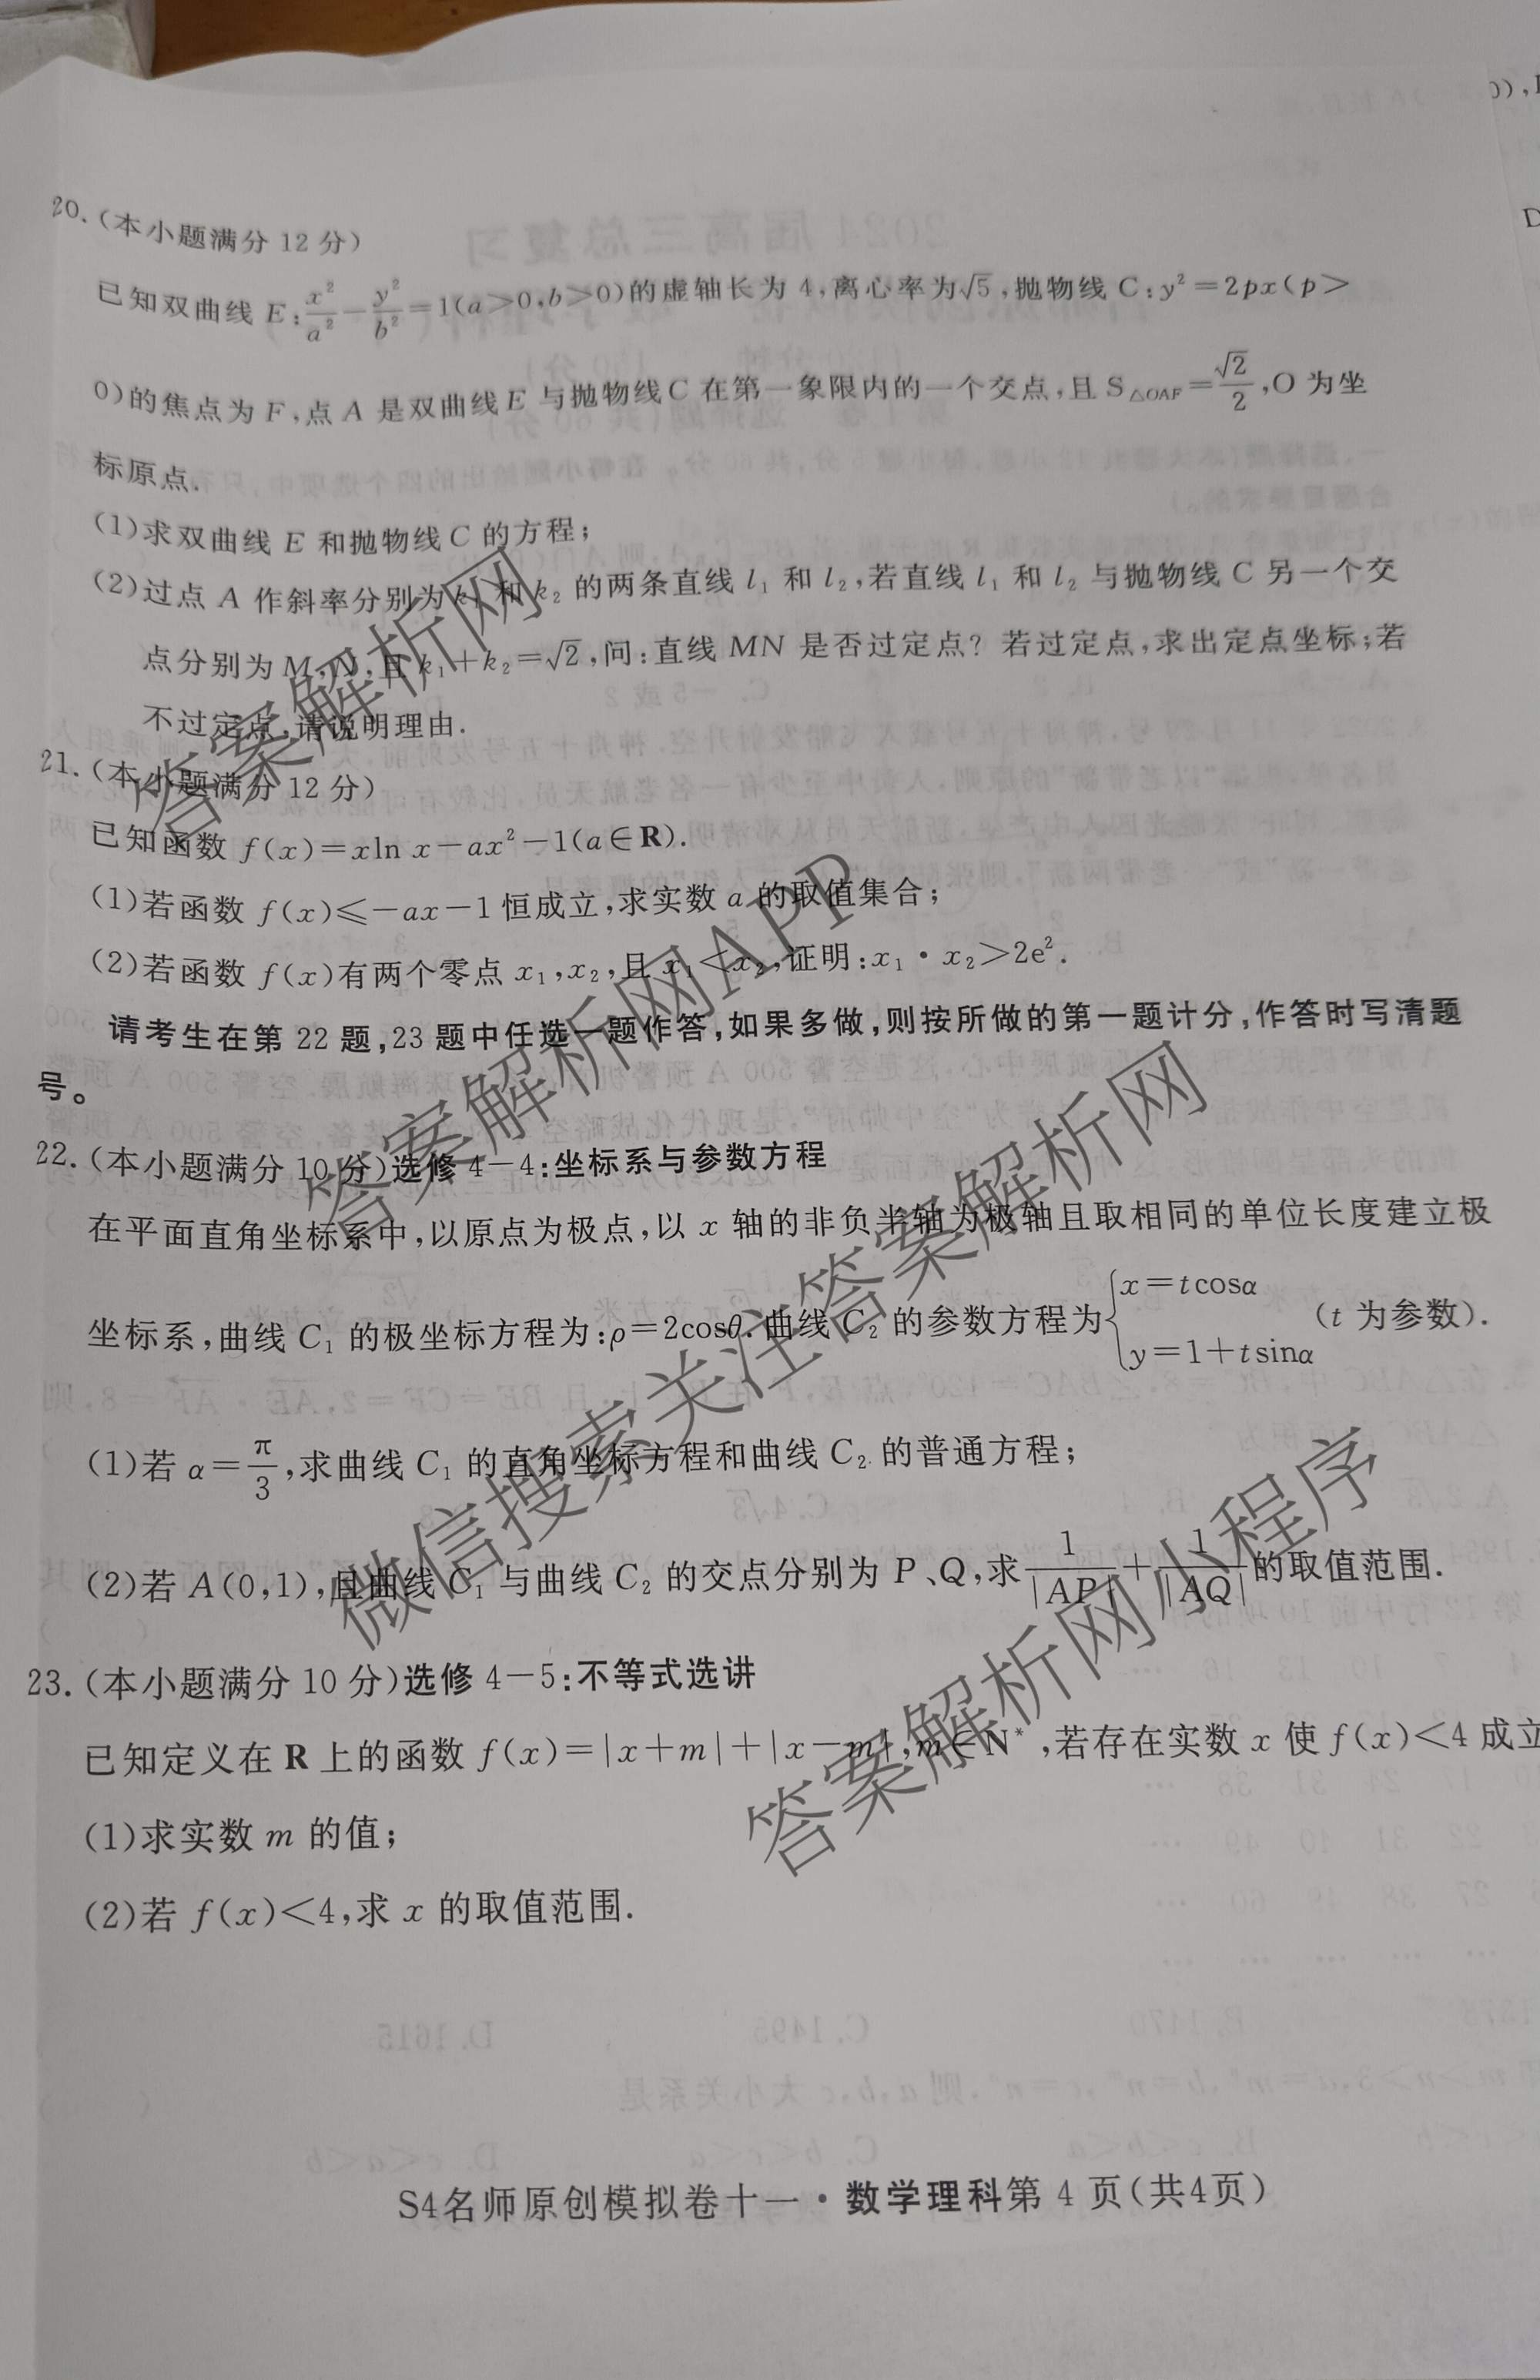 20.(本小题满分 12 分)
已知双曲线 E:x²/a²-y²/b²=1(a>0,b>0)的虚轴长为 4,离心率为√5,抛物线 C:y²=2px(p>
0)的焦点为 F,点 A 是双曲线 E 与抛物线 C 在第一象限内的一个交点,且 S△OAF=√2/2,O 为坐
标原点.
(1)求双曲线 E 和抛物线 C 的方程;
(2)过点 A 作斜率分别为 k₁ 和 k₂ 的两条直线 l₁ 和 l₂,若直线 l₁ 和 l₂ 与抛物线 C 另一个交
点分别为 M,N,且 k₁+k₂=√2,问:直线 MN 是否过定点? 若过定点,求出定点坐标;若
不过定点,请说明理由.
21.(本小题满分 12 分)
已知函数 f(x)=xln x-ax²-1(a∈R).
(1)若函数 f(x)≤-ax-1 恒成立,求实数 a 的取值集合;
(2)若函数 f(x)有两个零点 x₁,x₂,且 x₁<x₂,证明:x₁·x₂>2e².
请考生在第 22 题,23 题中任选一题作答,如果多做,则按所做的第一题计分,作答时写清题
号。
22.(本小题满分 10 分)选修 4-4:坐标系与参数方程
在平面直角坐标系中,以原点为极点,以 x 轴的非负半轴为极轴且取相同的单位长度建立极
坐标系,曲线 C₁ 的极坐标方程为:ρ=2cosθ.曲线 C₂ 的参数方程为{x=tcosα y=1+tsinα (t 为参数).
(1)若 α=π/3,求曲线 C₁ 的直角坐标方程和曲线 C₂ 的普通方程;
(2)若 A(0,1),且曲线 C₁ 与曲线 C₂ 的交点分别为 P、Q,求 1/|AP|+1/|AQ| 的取值范围.
23.(本小题满分 10 分)选修 4-5:不等式选讲
已知定义在 R 上的函数 f(x)=|x+m|+|x-m|,m∈N*,若存在实数 x 使 f(x)<4 成立
(1)求实数 m 的值;
(2)若 f(x)<4,求 x 的取值范围.
S4名师原创模拟卷十一·数学理科第 4 页(共4页)
答案解析网
答案解析网APP
微信搜索关注答案解析网
答案解析网小程序